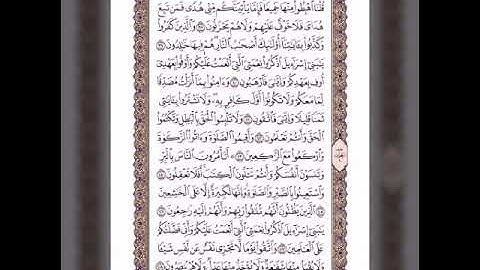 قُلْنَا ٱهْبِطُوا۟ مِنْهَا جَمِيعًا فَإِمَّا يَأْتِيَنَّكُم مِّنِّى هُدًى فَمَن تَبِعَ
هُدَاىَ فَلَا خَوْفٌ عَلَيْهِمْ وَلَا هُمْ يَحْزَنُونَ ٣٨ وَٱلَّذِينَ كَفَرُوا۟
وَكَذَّبُوا۟ بِـَٔايَـٰتِنَآ أُو۟لَـٰٓئِكَ أَصْحَـٰبُ ٱلنَّارِ هُمْ فِيهَا خَـٰلِدُونَ ٣٩
يَـٰبَنِىٓ إِسْرَٰٓءِيلَ ٱذْكُرُوا۟ نِعْمَتِىَ ٱلَّتِىٓ أَنْعَمْتُ عَلَيْكُمْ وَأَوْفُوا۟ بِعَهْدِىٓ
أُوفِ بِعَهْدِكُمْ وَإِيَّـٰىَ فَٱرْهَبُونِ ٤٠ وَءَامِنُوا۟ بِمَآ أَنزَلْتُ مُصَدِّقًا
لِّمَا مَعَكُمْ وَلَا تَكُونُوٓا۟ أَوَّلَ كَافِرٍۭ بِهِۦ وَلَا تَشْتَرُوا۟ بِـَٔايَـٰتِى
ثَمَنًا قَلِيلًا وَإِيَّـٰىَ فَٱتَّقُونِ ٤١ وَلَا تَلْبِسُوا۟ ٱلْحَقَّ بِٱلْبَـٰطِلِ وَتَكْتُمُوا۟
ٱلْحَقَّ وَأَنتُمْ تَعْلَمُونَ ٤٢ وَأَقِيمُوا۟ ٱلصَّلَوٰةَ وَءَاتُوا۟ ٱلزَّكَوٰةَ
وَٱرْكَعُوا۟ مَعَ ٱلرَّٰكِعِينَ ٤٣ أَتَأْمُرُونَ ٱلنَّاسَ بِٱلْبِرِّ
وَتَنسَوْنَ أَنفُسَكُمْ وَأَنتُمْ تَتْلُونَ ٱلْكِتَـٰبَ أَفَلَا تَعْقِلُونَ ٤٤
وَٱسْتَعِينُوا۟ بِٱلصَّبْرِ وَٱلصَّلَوٰةِ وَإِنَّهَا لَكَبِيرَةٌ إِلَّا عَلَى ٱلْخَـٰشِعِينَ ٤٥
ٱلَّذِينَ يَظُنُّونَ أَنَّهُم مُّلَـٰقُوا۟ رَبِّهِمْ وَأَنَّهُمْ إِلَيْهِ رَٰجِعُونَ ٤٦
يَـٰبَنِىٓ إِسْرَٰٓءِيلَ ٱذْكُرُوا۟ نِعْمَتِىَ ٱلَّتِىٓ أَنْعَمْتُ عَلَيْكُمْ وَأَنِّى فَضَّلْتُكُمْ
عَلَى ٱلْعَـٰلَمِينَ ٤٧ وَٱتَّقُوا۟ يَوْمًا لَّا تَجْزِى نَفْسٌ عَن نَّفْسٍ شَيْـًٔا
وَلَا يُقْبَلُ مِنْهَا شَفَـٰعَةٌ وَلَا يُؤْخَذُ مِنْهَا عَدْلٌ وَلَا هُمْ يُنصَرُونَ ٤٨